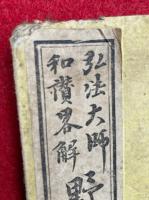 弘法大師
和讃畧解